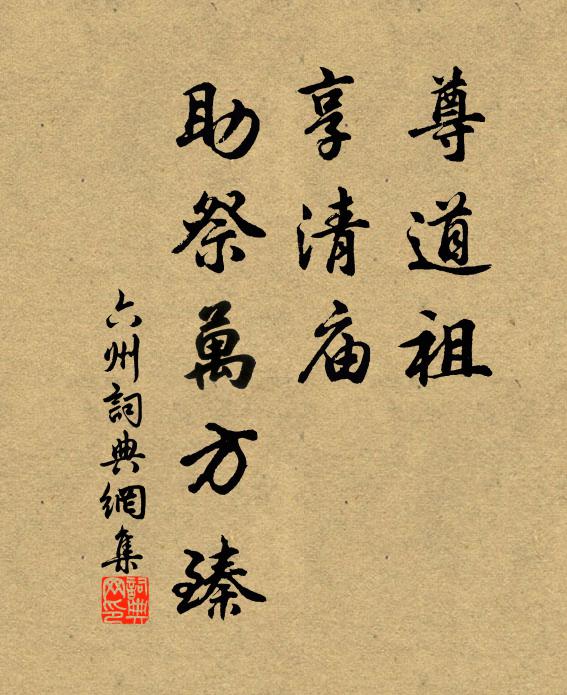 尊道祖
享清庙
助祭萬方臻
六州詞典網集
詞典网印